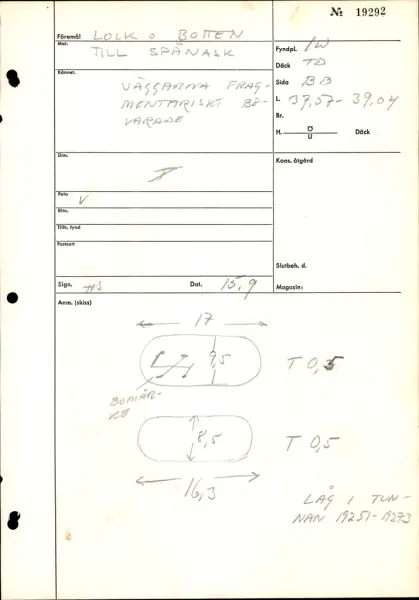 № 19292
Föremål LOCK O BOTTEN
Mat. TILL SPÅNASK
Fyndpl. IW
Däck TD
Kännet. VÄGGARNA FRAG-
MENTARISKT BE-
VARADE
Sida BB
L. 37,57-39,04
Br.
H. Ö Däck
U
Dim.
Kons. åtgärd
Foto V
Ritn.
Tillh. fynd
Fastsatt
Slutbeh. d.
Sign. HS Dat. 15.9
Magasin:
Anm. (skiss)
17
9,5
T 0,5
BOMÄR-
KE
8,5
T 0,5
16,3
LÅG I TUN-
NAN 19251-19273